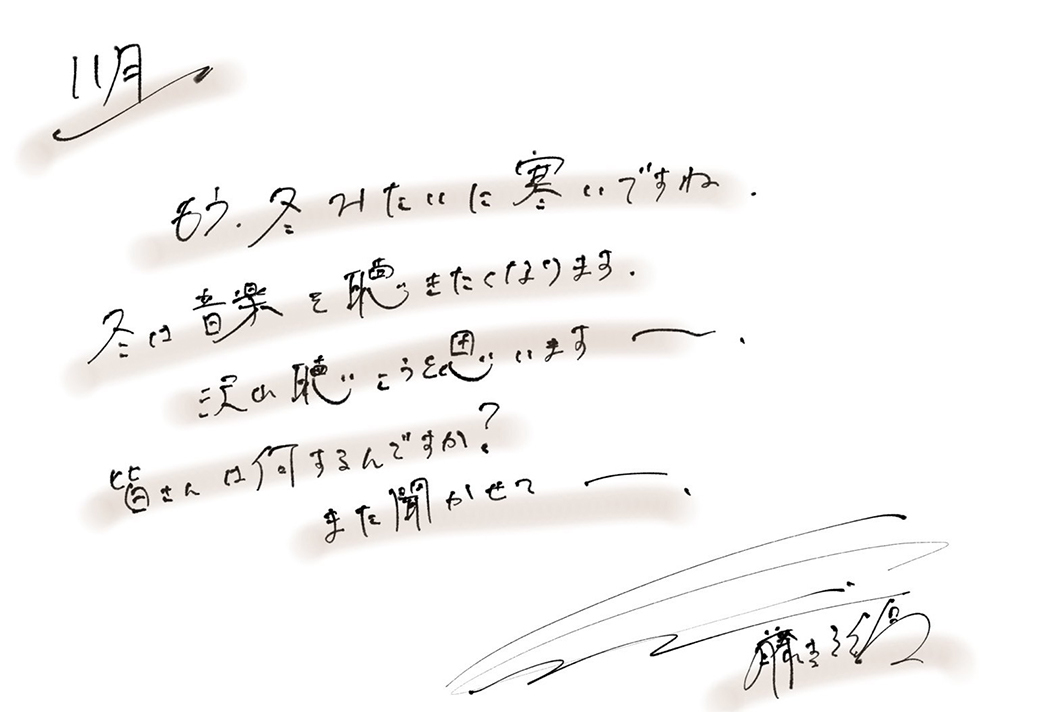 11月
もう、冬みたいに寒いですね.
冬は音楽を聴きたくなります.
沢山聴こうと思いますー.
皆さんは何するんですか?
また聞かせてー.